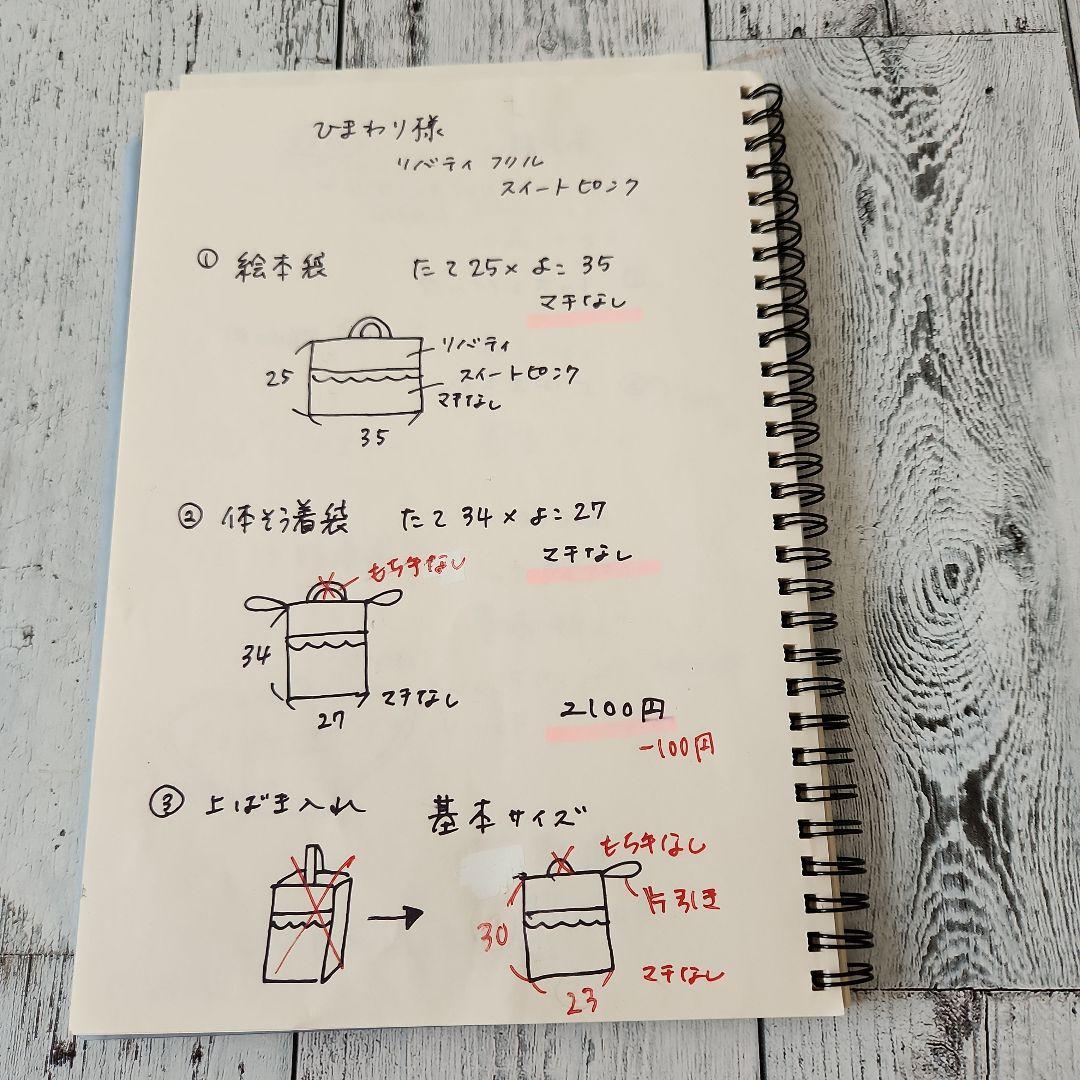 ひまわり様
リバティ フリル
スイートピンク
① 絵本袋 たて25×よこ35
マチなし
リバティ
25 スイートピンク
マチなし
35
② 体そう着袋 たて34×よこ27
マチなし
もち手なし
34
マチなし
27
2100円
-100円
③ 上ばき入れ 基本サイズ
もち手なし
片引き
30
マチなし
23